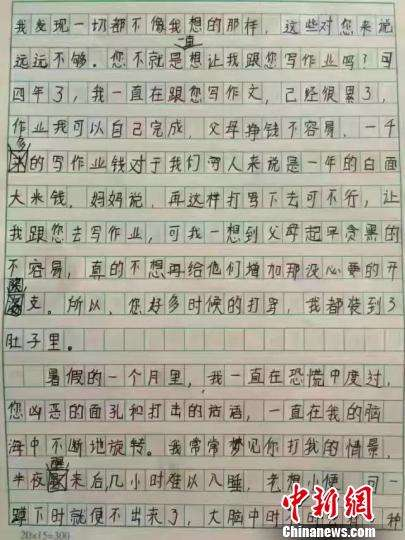 我发现一切都不像我想的那样，这些对您来说
远远不够。您不就是一直想让我跟您写作业吗？可
四年了，我一直在跟您写作文，已经很累了，
作业我可以自己完成，父母挣钱不容易，一千
多的写作业钱对于我们穷人来说是一年的白面
大米钱，妈妈说，再这样打骂下去可不行，让
我跟您去写作业，可我一想到父母起早贪黑的
不容易，真的不想再给他们增加那没必要的开
支。所以，您好多时候的打骂，我都装到了
肚子里。
暑假的一个月里，我一直在恐慌中度过，
您凶恶的面孔和打击的话语，一直在我的脑
海中不断地旋转。我常常梦见你打我的情景，
半夜醒来后几小时难以入睡，老想小便，可一
蹲下时就便不出来了，大脑中时
种
20×15=300
中新网
Chinanews.com